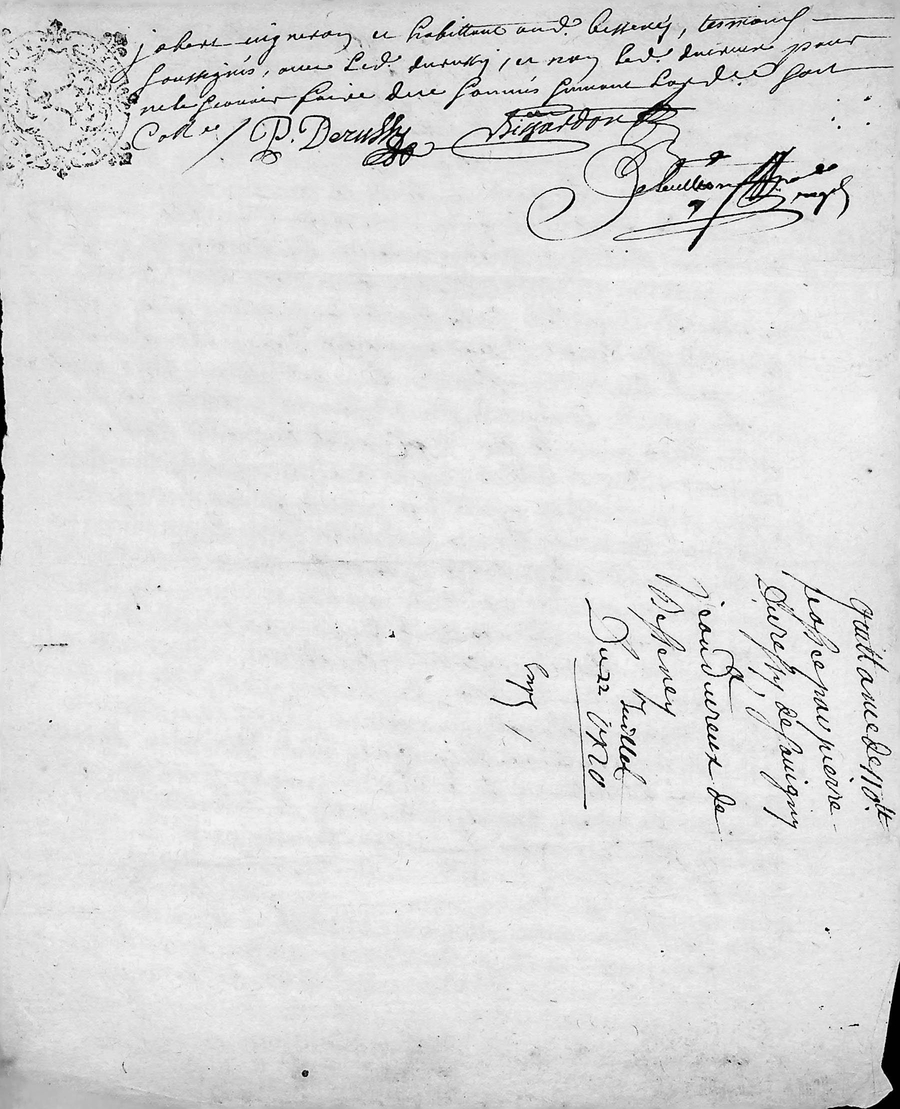 jobert vigneron et habittant aud.t bessenay, tesmoins
soussignés, avec led. derussy, et non led. dureux pour
ne le scavoir faire de ce sommés suivant l'ordce soit
Colle /
P. Derussy
Bissardon
quittance de 110 ltt
passée par pierre
Durussy, de Savigny
a Jean Dureux de
Bessenay
Du 22 Juillet
1720